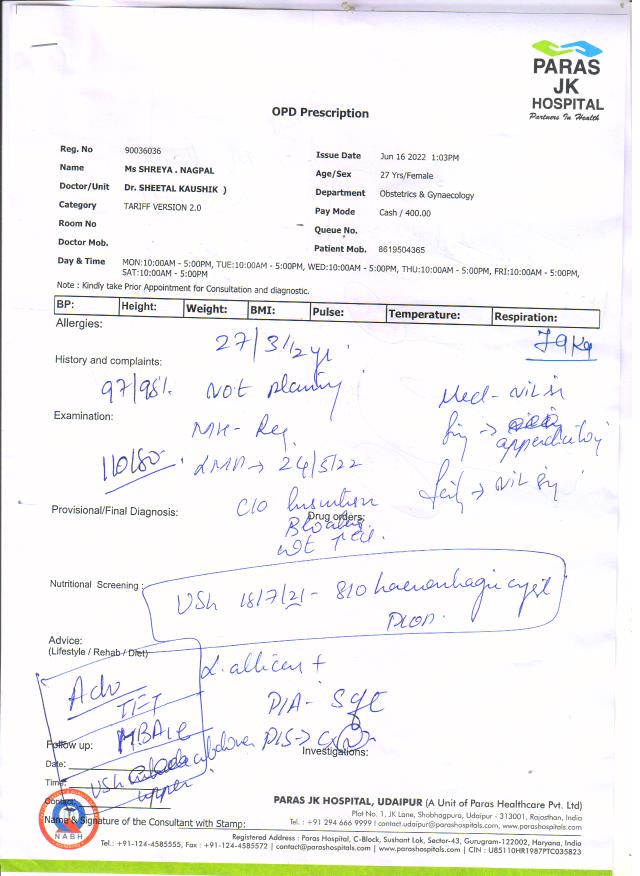 PARAS
JK
HOSPITAL
Partners In Health
OPD Prescription
Reg. No 90036036
Issue Date Jun 16 2022 1:03PM
Name Ms SHREYA . NAGPAL
Age/Sex 27 Yrs/Female
Doctor/Unit Dr. SHEETAL KAUSHIK )
Department Obstetrics & Gynaecology
Category TARIFF VERSION 2.0
Pay Mode Cash / 400.00
Room No
Queue No.
Doctor Mob.
Patient Mob. 8619504365
Day & Time MON:10:00AM - 5:00PM, TUE:10:00AM - 5:00PM, WED:10:00AM - 5:00PM, THU:10:00AM - 5:00PM, FRI:10:00AM - 5:00PM,
SAT:10:00AM - 5:00PM
Note : Kindly take Prior Appointment for Consultation and diagnostic.
BP: Height: Weight: BMI: Pulse: Temperature: Respiration:
Allergies:
27/3½ yr
79 Kg
History and complaints:
97/98%. Not planning
Med - Nil
Examination:
MH - Reg.
110/80
LMP → 24/5/22
Provisional/Final Diagnosis:
C/O
Drug orders:
Bloating
not
Nutritional Screening :
USG 18/7/21 - S/O haemorrhagic cyst
PCOD.
Advice:
(Lifestyle / Rehab / Diet)
Adv
P/A - Soft
TFT
HBA1C
Follow up:
P/S →
Investigations:
Date:
Time:
USG
upper
Contact:
NABH
Name & Signature of the Consultant with Stamp:
PARAS JK HOSPITAL, UDAIPUR (A Unit of Paras Healthcare Pvt. Ltd)
Plot No. 1, JK Lane, Shobhagpura, Udaipur - 313001, Rajasthan, India
Tel. : +91 294 666 9999 I contact.udaipur@parashospitals.com, www.parashospitals.com
Registered Address : Paras Hospital, C-Block, Sushant Lok, Sector-43, Gurugram-122002, Haryana, India
Tel.: +91-124-4585555, Fax : +91-124-4585572 | contact@parashospitals.com | www.parashospitals.com | CIN : U85110HR1987PTC035823